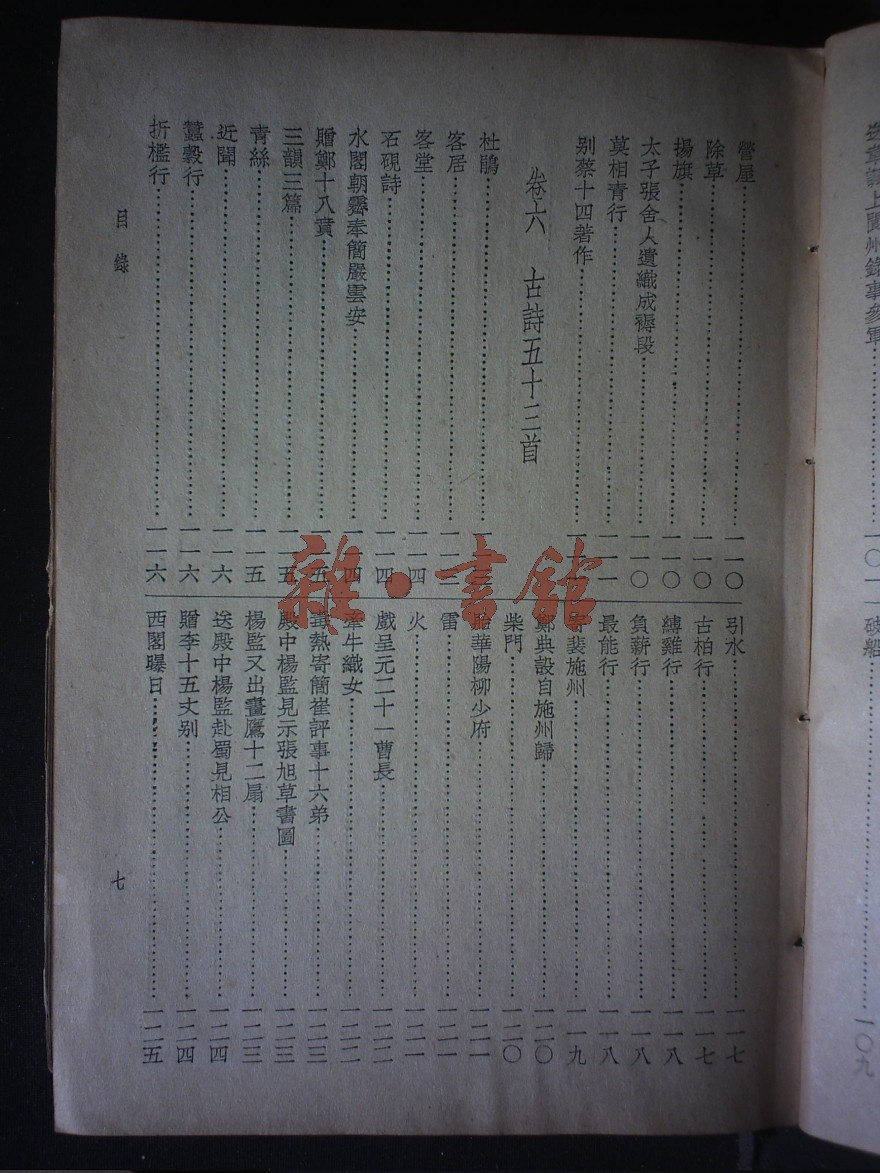 送韋諷上閬州錄事參軍
一〇一
破船
一〇九
營屋……一一〇
除草……一一〇
揚旗……一一〇
太子張舍人遺織成褥段……一一〇
莫相青行……一一一
別蔡十四著作……
卷六 古詩五十三首
杜鵑……
客居……
客堂……一一四
石硯詩……一一四
水閣朝霽奉簡嚴雲安……一一四
贈鄭十八賁……一一五
三韻三篇……一一五
青絲……一一五
近聞……一一六
蠶穀行……一一六
折檻行……一一六
引水……一一七
古柏行……一一七
縛雞行……一一八
負薪行……一一八
最能行……一一八
寄裴施州……一一九
鄭典設自施州歸……一二〇
柴門……一二〇
貽華陽柳少府……一二一
雷……一二一
火……一二一
戲呈元二十一曹長……一二二
牽牛織女……一二二
毒熱寄簡崔評事十六弟……一二三
殿中楊監見示張旭草書圖……一二三
楊監又出畫鷹十二扇……一二三
送殿中楊監赴蜀見相公……一二四
贈李十五丈別……一二四
西閣曝日……一二五
目錄
七
雜·書館